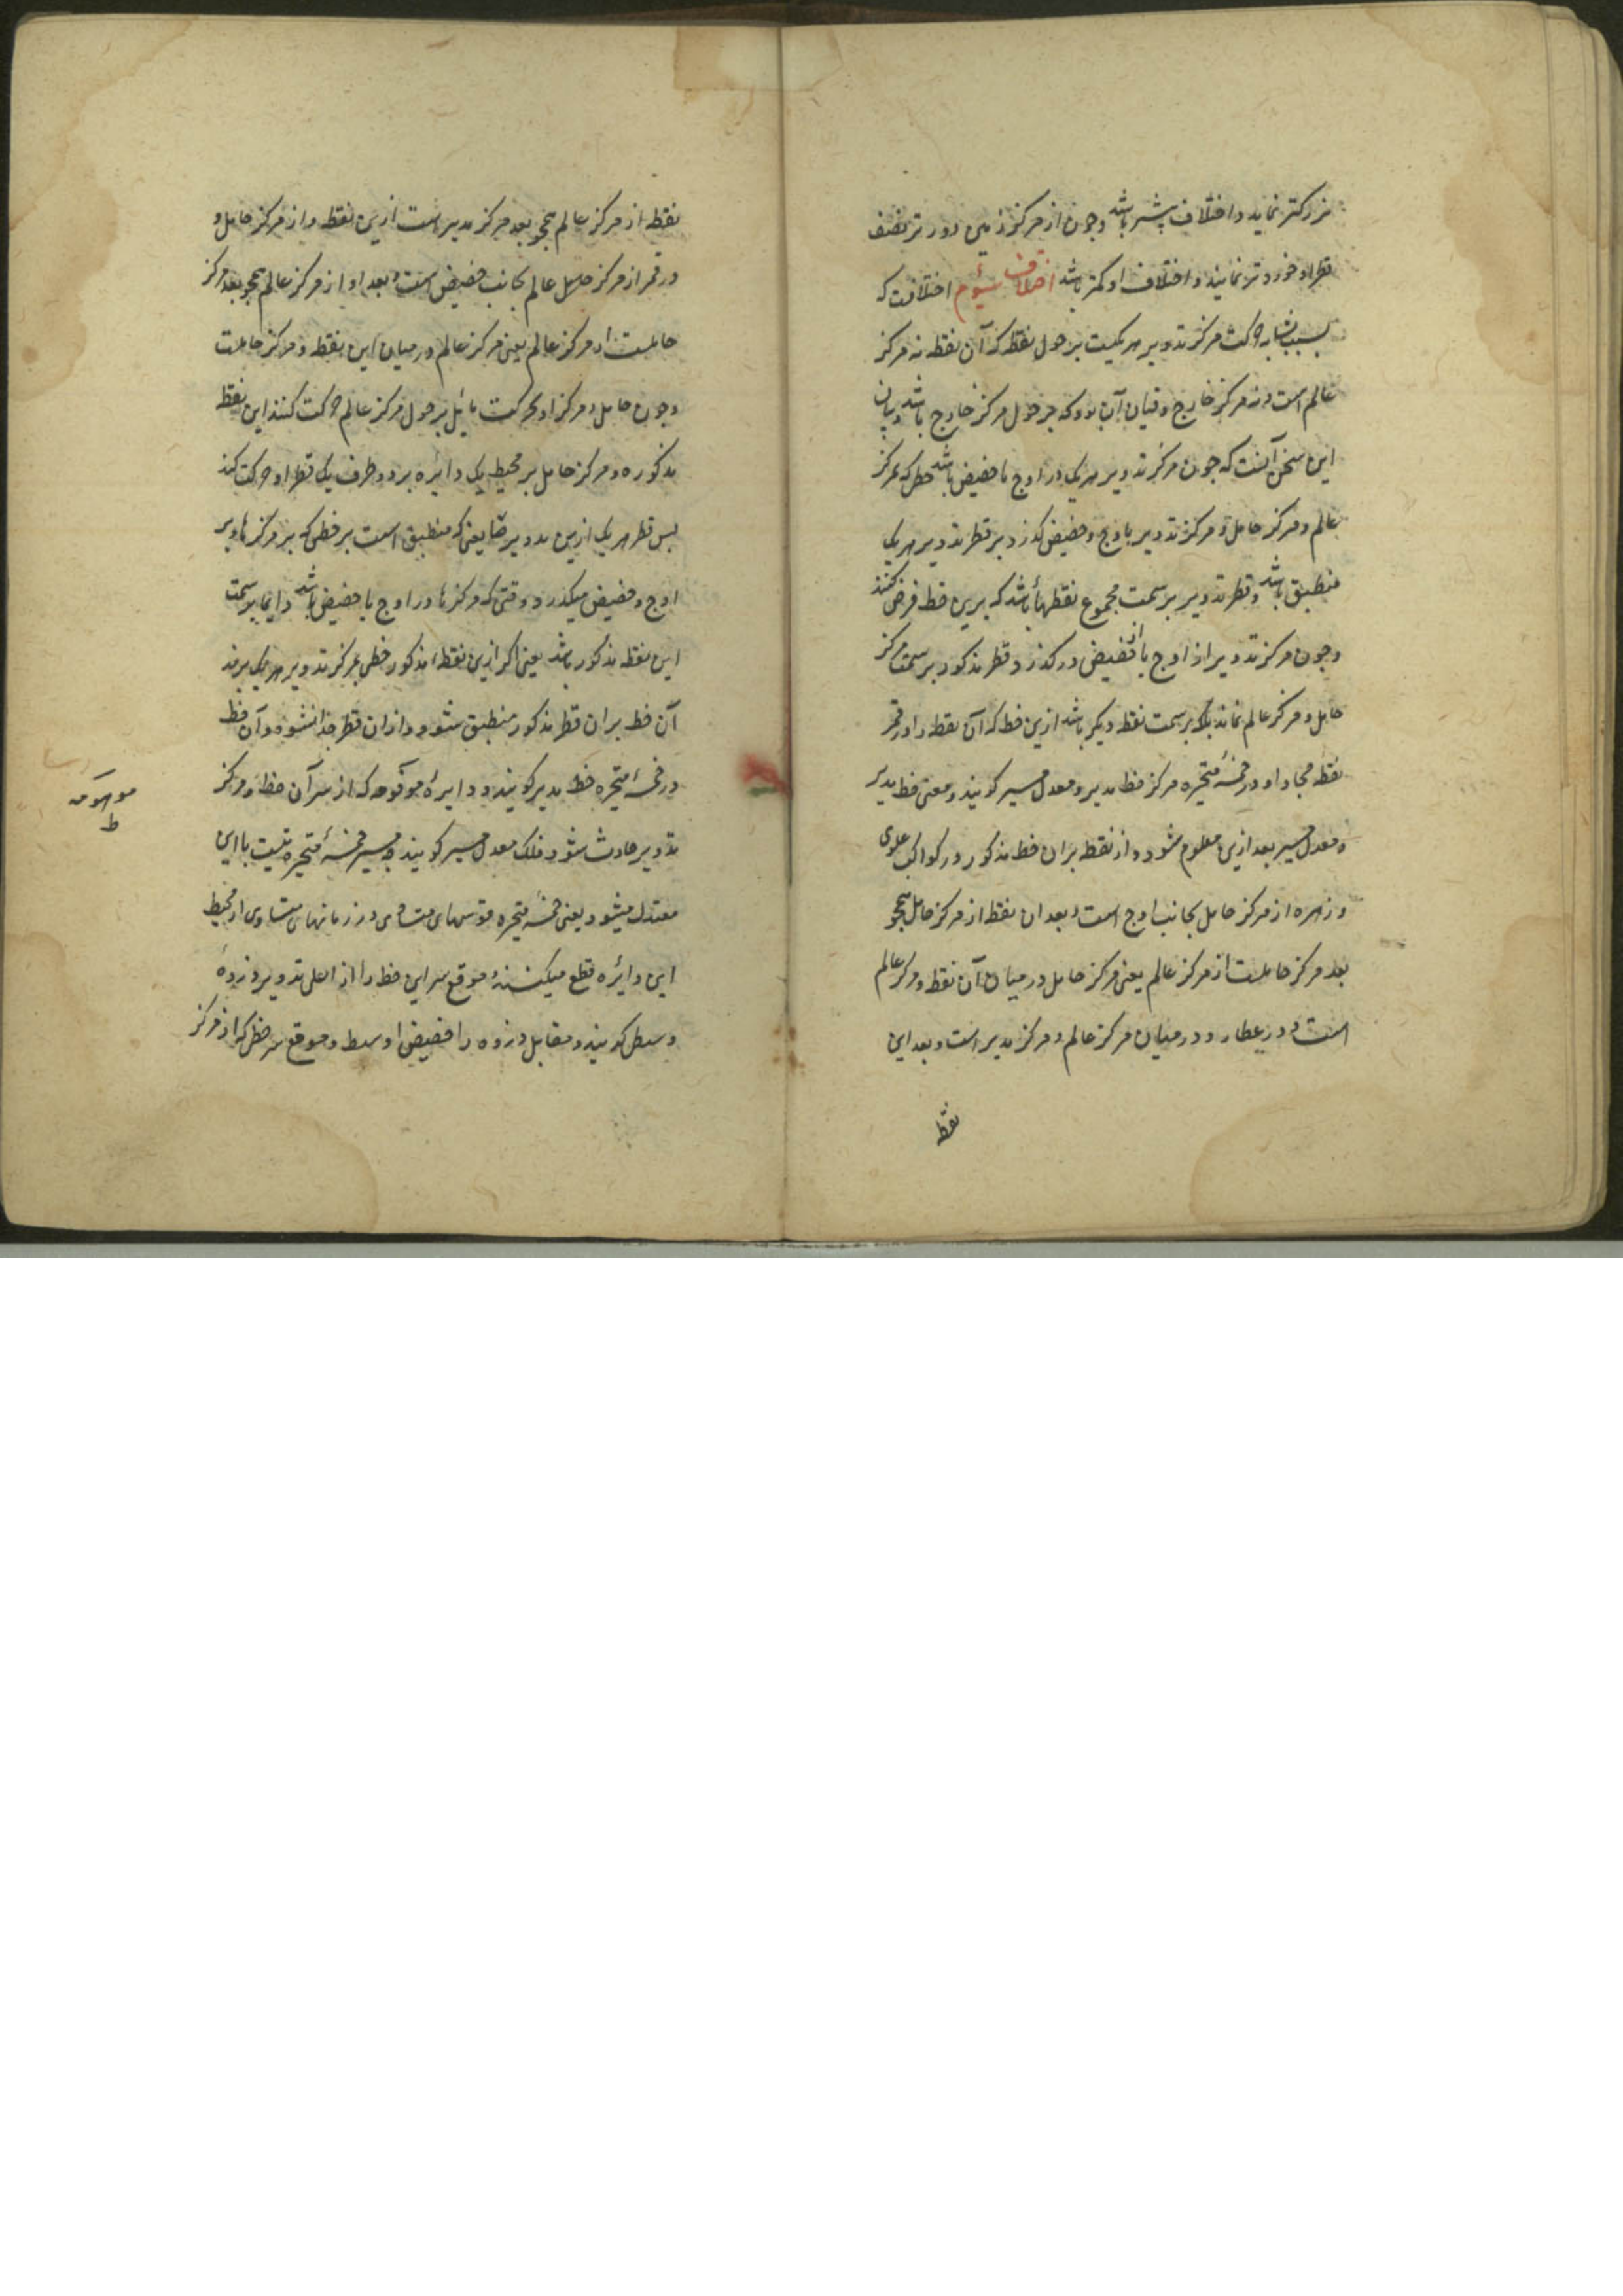 بزرکتر نماید و اختلاف بیشتر باشد و چون از مرکز زمین دورتر نصف
قطر او خوردتر نماید و اختلاف او کمتر باشد اختلاف سیوم اختلافیست که
بسبب تشابه حرکت مرکز تدویر هر یکیست بر حول نقطه که آن نقطه نه مرکز
عالم است و نه مرکز خارج و قیاس آن بود که بر حول مرکز خارج باشد و بیان
این سخن آنست که چون مرکز تدویر هر یک در اوج یا حضیض باشد خطی که بمرکز
عالم و مرکز حامل و مرکز تدویر باوج و حضیض کذرد بر قطر تدویر هر یک
منطبق باشد و قطر تدویر بر سمت مجموع نقطها باشد که برین خط فرض کنند
و چون مرکز تدویر از اوج یا حضیض درکذرد قطر مذکور بر سمت مرکز
حامل و مرکز عالم نماند بلکه بر سمت نقطه دیکر باشد ازین خط که آن نقطه را در قمر
نقطه محاذاه و در خمسهٔ متحیره مرکز خط مدیر و معدل مسیر کویند و معنی خط مدیر
و معدل مسیر بعد ازین معلوم شود و از نقطه بران خط مذکور در کواکب علوی
و زهره از مرکز حامل بجانب اوج است و بعد ان نقطه از مرکز حامل همچو
بعد مرکز حاملست از مرکز عالم یعنی مرکز حامل در میان آن نقطه و مرکز عالم
است و در عطارد در میان مرکز عالم و مرکز مدیر است و بعد این
نقطه
نقطه از مرکز عالم همچو بعد مرکز مدیر است ازین نقطه و از مرکز حامل و
در قمر از مرکز عالم بجانب حضیض است و بعد او از مرکز عالم همچو بعد مرکز
حاملست از مرکز عالم یعنی مرکز عالم در میان این نقطه و مرکز حاملست
و چون حامل و مرکز او بحرکت مائل بر حول مرکز عالم حرکت کنند این نقطه
مذکوره و مرکز حامل بر محیط یک دائره بر دو طرف یک قطر او حرکت کند
بس قطر هر یک ازین تدویرها یعنی که منطبق است بر خطی که بر مرکزها و بر
اوج و حضیض میکذرد وقتی که مرکزها در اوج یا حضیض باشد دایما بر سمت
این نقطه مذکور باشد یعنی اکر ازین نقطهٔ مذکور خطی بمرکز تدویر هر یک برند
آن خط بران قطر مذکور منطبق شود و ازان قطر جدا نشود و آن خط
در خمسهٔ متحیره خط مدیر کویند و دایرهٔ که از سر آن خط و مرکز
تدویر حادث شود فلک معدل مسیر کویند چه مسیر خمسهٔ متحیره نسبت با این
معتدل میشود یعنی خمسهٔ متحیره قوسهای متساوی در زمانهای متساوی از محیط
این دائره قطع میکنند و موقع سر این خط را از اعلی تدویر ذروهٔ
وسطی کویند و مقابل ذروه را حضیض اوسط و موقع سر خطی که از مرکز
موهومه
ط